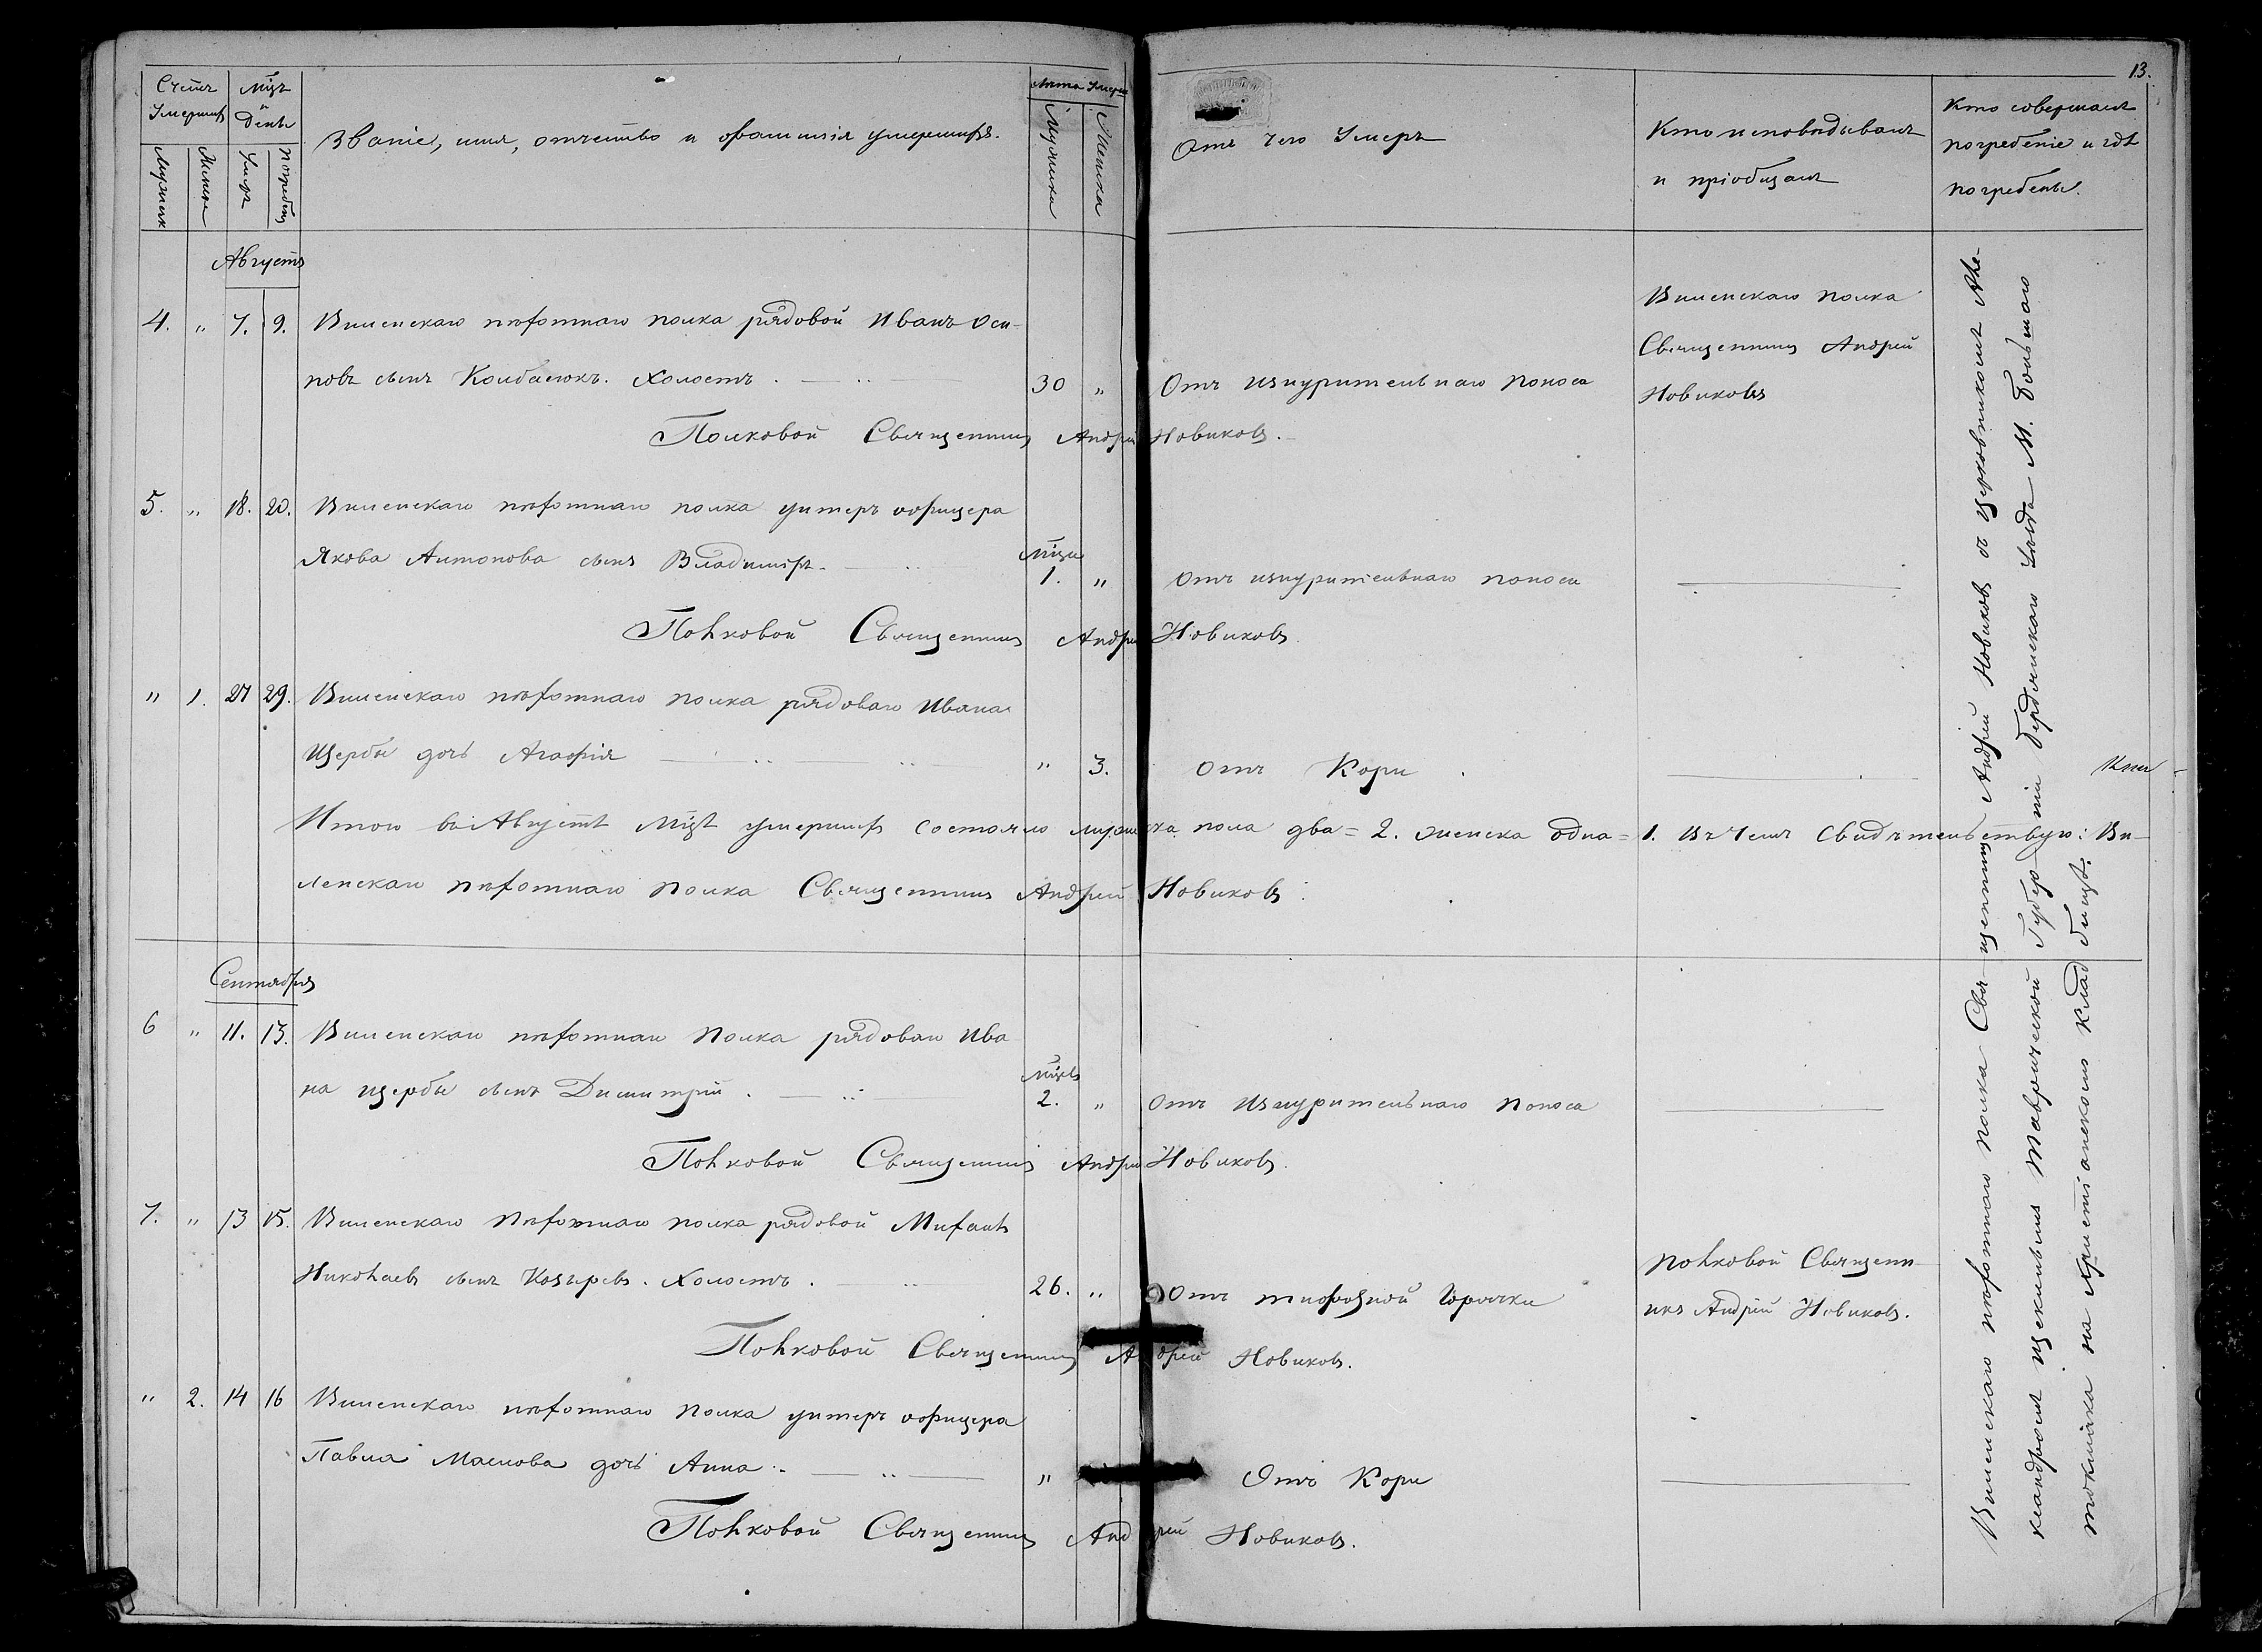 13.
Счетъ Умершихъ
Мужеска
Женска
Мцъ и День
Умер.
Погребен.
Званіе, имя, отчество и фамилія умершихъ.
Лѣта Умерш.
Мужеска
Женска
Отъ чего Умеръ
Кто исповѣдывалъ
и пріобщалъ
Кто совершалъ
погребеніе и гдѣ
погребены.
Августъ
4. „ 7. 9. Виленскаго пѣхотнаго полка рядовой Иванъ Оси-
повъ сынъ Колбасюкъ. Холостъ. 30 „ Отъ изнурительнаго поноса
Виленскаго полка
Священникъ Андрей
Новиковъ
Полковой Священникъ Андрей Новиковъ.
5. „ 18. 20. Виленскаго пѣхотнаго полка унтеръ офицера
Якова Антонова сынъ Владиміръ. мцъ 1. „ Отъ изнурительнаго поноса
Полковой Священникъ Андрей Новиковъ.
„ 1. 27 29. Виленскаго пѣхотнаго полка рядоваго Ивана
Щербы дочь Агафія „ 3. Отъ Кори.
Итого въ Августѣ Мцѣ умершихъ состояло мужеска пола два = 2. женска одна = 1. Въ чемъ свидѣтельствую: Ви-
ленскаго пѣхотнаго полка Священникъ Андрей Новиковъ.
Сентябрь
6 „ 11. 13. Виленскаго пѣхотнаго полка рядоваго Ива
на Щербы сынъ Димитрій. мцъ 2. „ Отъ изнурительнаго поноса
Полковой Священникъ Андрей Новиковъ.
7. „ 13 15. Виленскаго пѣхотнаго полка рядовой Михаилъ
Николаевъ сынъ Козыревъ. Холостъ. 26. „ Отъ тифозной горячки
Полковой Священ
икъ Андрей Новиковъ.
Полковой Священникъ Андрей Новиковъ.
„ 2. 14 16 Виленскаго пѣхотнаго полка унтеръ офицера
Павла Маслова дочь Анна. „ Отъ Кори
Полковой Священникъ Андрей Новиковъ.
Виленскаго пѣхотнаго полка Священникъ Андрей Новиковъ съ церковникомъ Але-
ксандромъ Таврической Губерніи Бердянскаго уѣзда М. Большаго
Токмака на Христіанскомъ кладбищѣ.